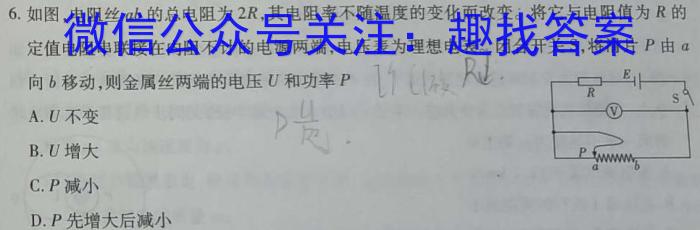 6. 如图,电阻丝ab的总电阻为2R,其电阻率不随温度的变化而改变;将它与电阻值为R的
微信公众号关注：趣找答案
定值电阻串联接在内阻不计的电源两端,电压表为理想电 闭合开关S,将滑片P由a
向b移动,则金属丝两端的电压U和功率P
R↓.
A. U不变
B. U增大
C. P减小
D. P先增大后减小
R E S
V
P
a b